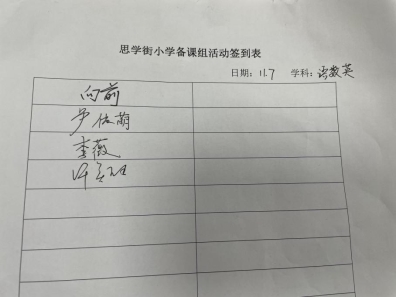 思学街小学备课组活动签到表
日期：11.7 学科：语数英
向前
罗佳萌
李薇